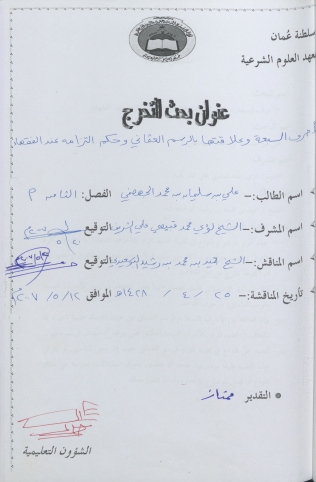 سلطنة عُمان
معهد العلوم الشرعية
عنوان بحث التخرج
أحرف السبعة وعلاقتها بالرسم العثماني وحكم التزامه عند الفقهاء
اسم الطالب:- علي بن سليمان بن محمد الجهضمي الفصل: الثامن م
اسم المشرف:- الشيخ لؤي محمد علي التوقيع
اسم المناقش:- الشيخ بن محمد بن رشيد التوقيع
تأريخ المناقشة:- ٢٥ / ٤ / ١٤٢٨هـ الموافق ١٢/ ٥/ ٢٠٠٧م
التقدير ممتاز
الشؤون التعليمية